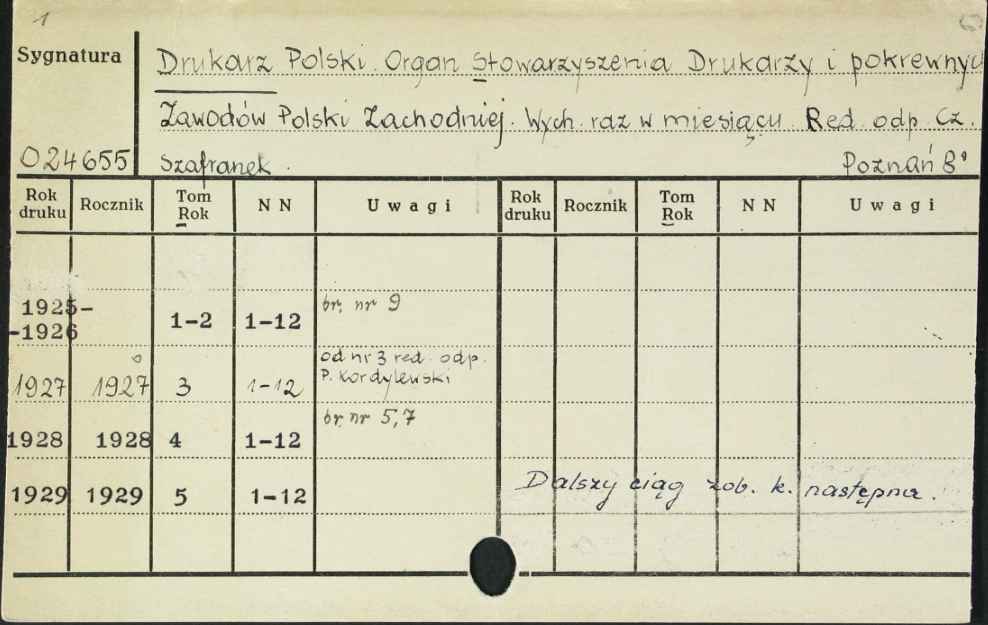 1
Sygnatura
Drukarz Polski. Organ Stowarzyszenia Drukarzy i pokrewnych
Zawodów Polski Zachodniej. Wych. raz w miesiącu. Red. odp. Cz.
024655 Szafranek. Poznań 8°
Rok druku Rocznik Tom Rok NN Uwagi Rok druku Rocznik Tom Rok NN Uwagi
1925- -1926 1-2 1-12 br. nr 9
1927 1927 3 1-12 od nr 3 red. odp. P. Kordylewski
1928 1928 4 1-12 br. nr 5,7
1929 1929 5 1-12 Dalszy ciąg zob. k. następna.